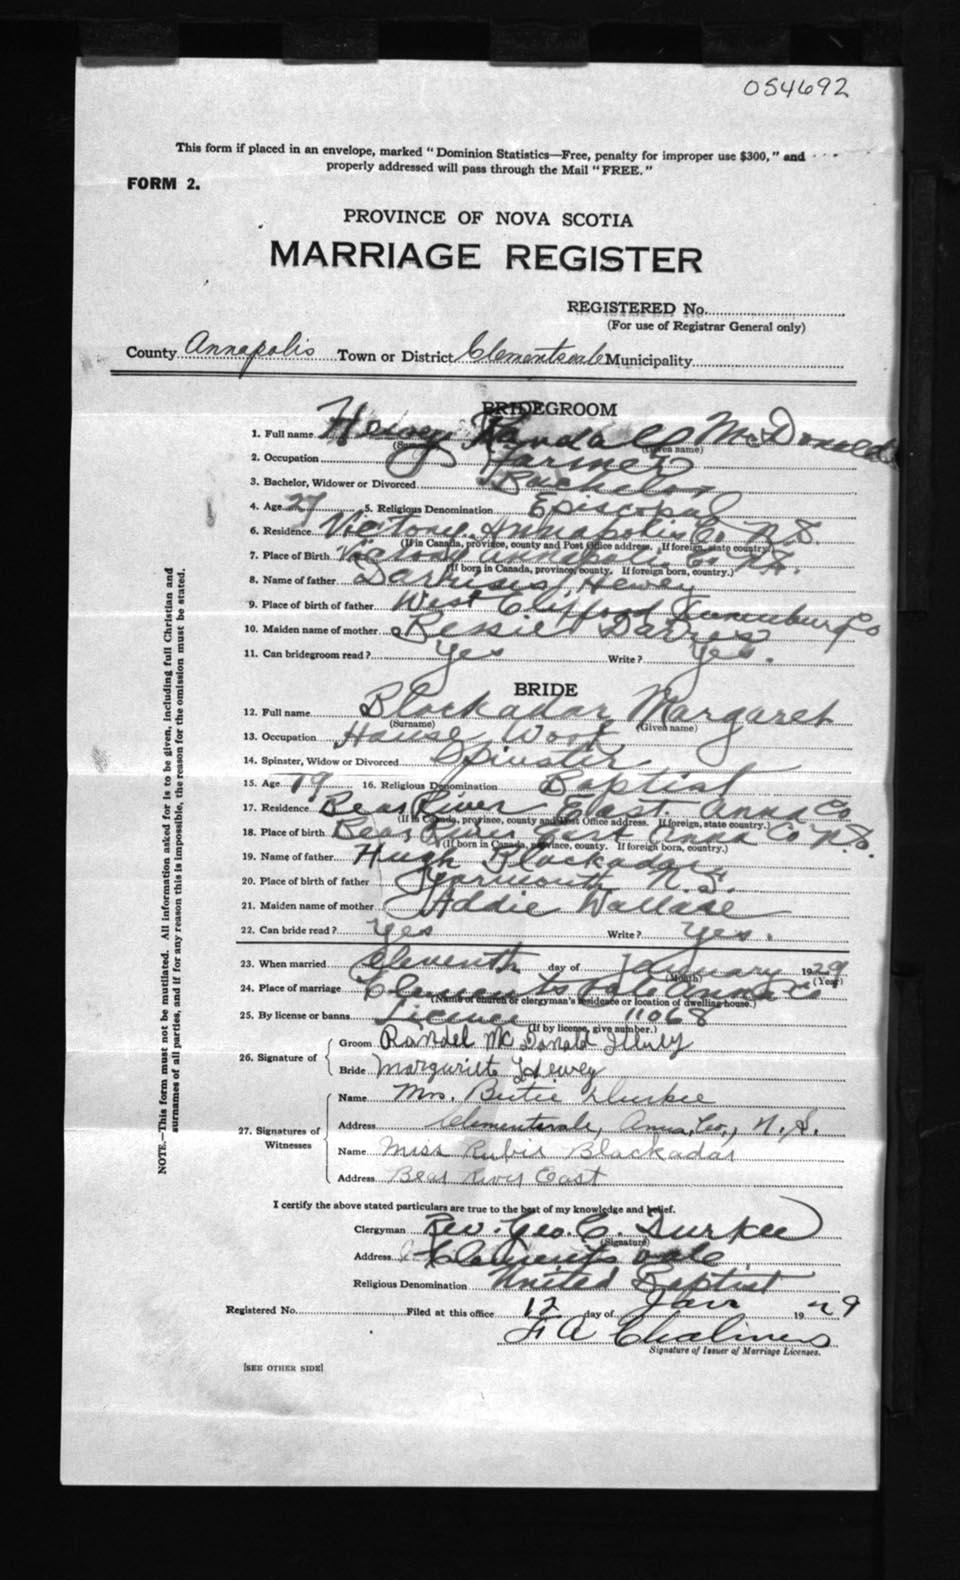 054692
This form if placed in an envelope, marked "Dominion Statistics—Free, penalty for improper use $300," and
properly addressed will pass through the Mail "FREE."
FORM 2.
PROVINCE OF NOVA SCOTIA
MARRIAGE REGISTER
REGISTERED No.
(For use of Registrar General only)
County Annapolis Town or District Clementsvale Municipality
BRIDEGROOM
1. Full name Hewey Randall McDonald
(Surname) (Given name)
2. Occupation Farmer
3. Bachelor, Widower or Divorced Bachelor
4. Age 27 5. Religious Denomination Episcopal
6. Residence Victory Annapolis Co N.S.
(If in Canada, province, county and Post Office address. If foreign, state country.)
7. Place of Birth Victory Annapolis Co N.S.
(If born in Canada, province, county. If foreign born, country.)
8. Name of father Hewey
9. Place of birth of father West Clifford Lunenburg Co
10. Maiden name of mother Bessie
11. Can bridegroom read? Yes Write? Yes.
BRIDE
12. Full name Blackadar Margaret
(Surname) (Given name)
13. Occupation House Work
14. Spinster, Widow or Divorced Spinster
15. Age 19 16. Religious Denomination Baptist
17. Residence Bear River East. Anna Co
(If in Canada, province, county and Post Office address. If foreign, state country.)
18. Place of birth Bear River East Anna Co N.S.
(If born in Canada, province, county. If foreign born, country.)
19. Name of father Hugh Blackadar
20. Place of birth of father Yarmouth N.S.
21. Maiden name of mother Addie Wallace
22. Can bride read? Yes Write? Yes.
23. When married Eleventh day of January 1929
(Month) (Year)
24. Place of marriage Clements Vale Anna Co
(Name of church or clergyman's residence or location of dwelling house.)
25. By license or banns Licence 11068
(If by license, give number.)
26. Signature of
Groom Randel Mc Donald
Bride Margariet Hewey
27. Signatures of Witnesses
Name Mrs. Durkee
Address Clementsvale, Anna. Co., N.S.
Name Miss Rubie Blackadar
Address Bear River East
I certify the above stated particulars are true to the best of my knowledge and belief.
Clergyman Rev. Geo. C. Durkee
(Signature)
Address Clements vale
Religious Denomination United Baptist
Registered No. Filed at this office 12 day of Jan 1929
F A Chalmers
Signature of Issuer of Marriage Licenses.
[SEE OTHER SIDE]
NOTE.—This form must not be mutilated. All information asked for is to be given, including full Christian and
surnames of all parties, and if for any reason this is impossible, the reason for the omission must be stated.